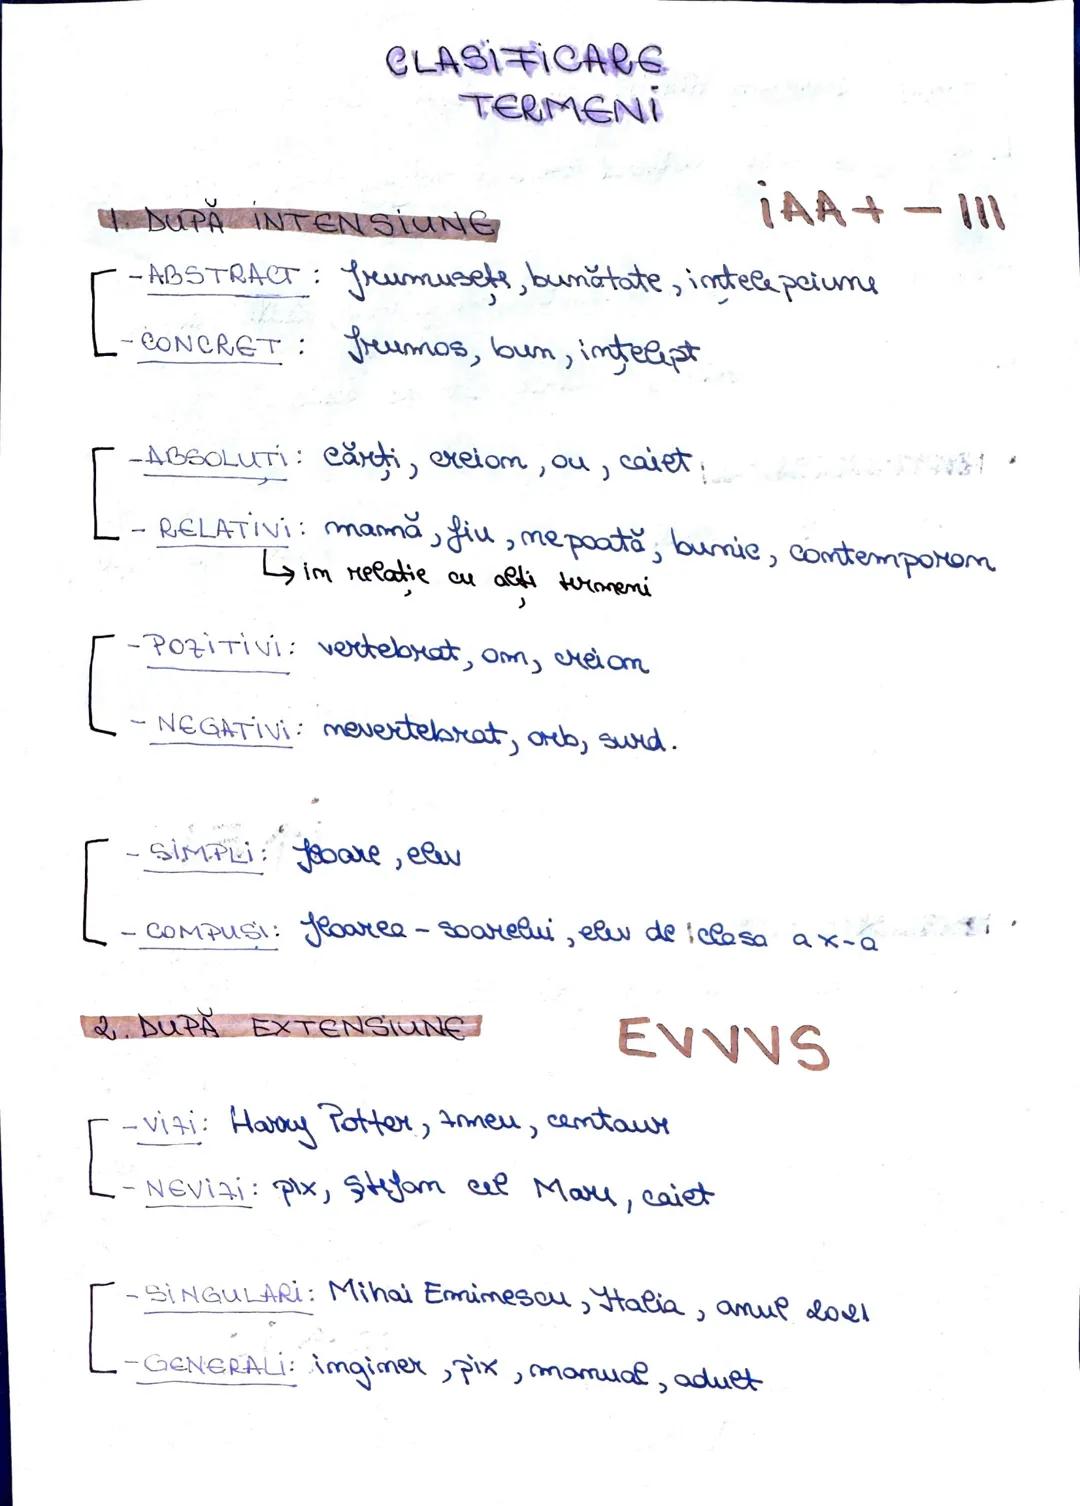 CLASIFICARE
TERMENI
1. DUPĂ INTENSIUNE
iAA+ - III
- ABSTRACT : frumusețe, bunătate, intelepciune
- CONCRET : frumos, bun, ințelept
- ABSOLUȚI : cărți, creion, ou, caiet
- RELATIVI : mamă, fiu, nepoată, bunic, contemporan
↳ in relație cu alți termeni
- POZITIVI : vertebrat, om, creion
- NEGATIVI : nevertebrat, orb, surd.
- SIMPLI : floare, elev
- COMPUȘI : floarea - soarelui, elev de clasa a x-a
2. DUPĂ EXTENSIUNE
EVVVS
- VIZI : Harry Potter, zmeu, centaur
- NEVIZI : pix, Ștefan cel Mare, caiet
- SINGULARI : Mihai Eminescu, Italia, anul 2021
- GENERALI : inginer, pix, manual, adult